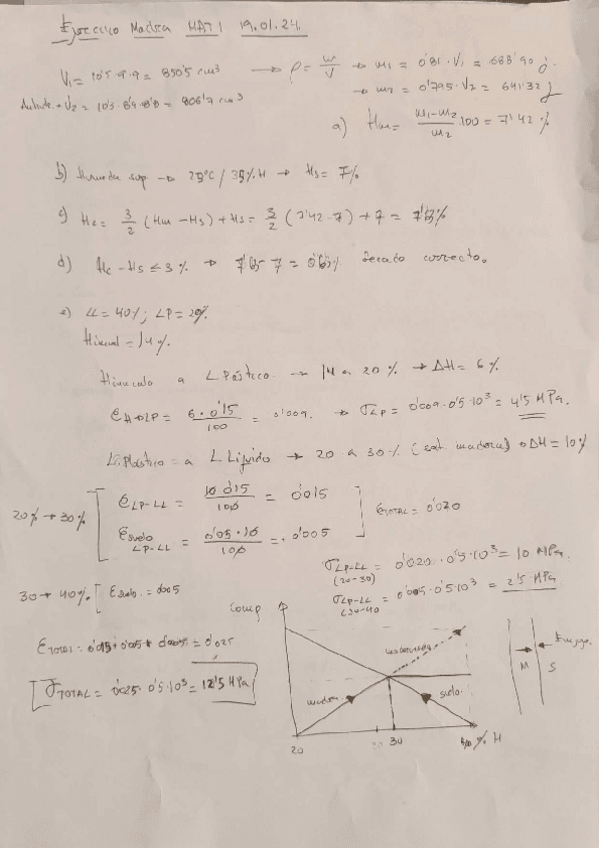 Ejercicio Madera MAT I 19.01.24.
V₁ = 10'5·9·9 = 850'5 cm³ → ρ = m/V → m₁ = 0'81·V₁ = 688'90 g.
V₂ = 10'3·8'9·8'8 = 806'7 cm³ → m₂ = 0'795·V₂ = 641'32 g
a) Hm = (m₁-m₂)/m₂ ·100 = 7'42 %
b) Humedad sup → 25ºC / 35% H → Hs = 7%
c) Hc = 3/2 (Hm - Hs) + Hs = 3/2 (7'42 - 7) + 7 = 7'63%
d) Hc - Hs ≤ 3 % → 7'63 - 7 = 0'63% Secado correcto.
e) LL = 40%; LP = 20%.
Hinicial = 14%.
Hinicial a L Plástico → 14 a 20 % → ΔH = 6 %
ε H→LP = 6·0'15/100 = 0'009. → σLP = 0'009·0'5·10³ = 4'5 MPa.
L. Plástico a L Líquido → 20 a 30% (sat. madera) → ΔH = 10%
20% → 30% [ εLP-LL = 10·0'15/100 = 0'015
εsuelo LP-LL = 0'05·10/100 = 0'005 ] εTOTAL = 0'020
σLP-LL (20-30) = 0'020·0'5·10³ = 10 MPa.
30 → 40% [ εsuelo = 0'005 σLP-LL 30-40 = 0'005·0'5·10³ = 2'5 MPa
εTOTAL = 0'015 + 0'005 + 0'005 = 0'025
[ σTOTAL = 0'025·0'5·10³ = 12'5 MPa ]
Comp
madera
suelo
20 30 40 % H
M S
Empuje